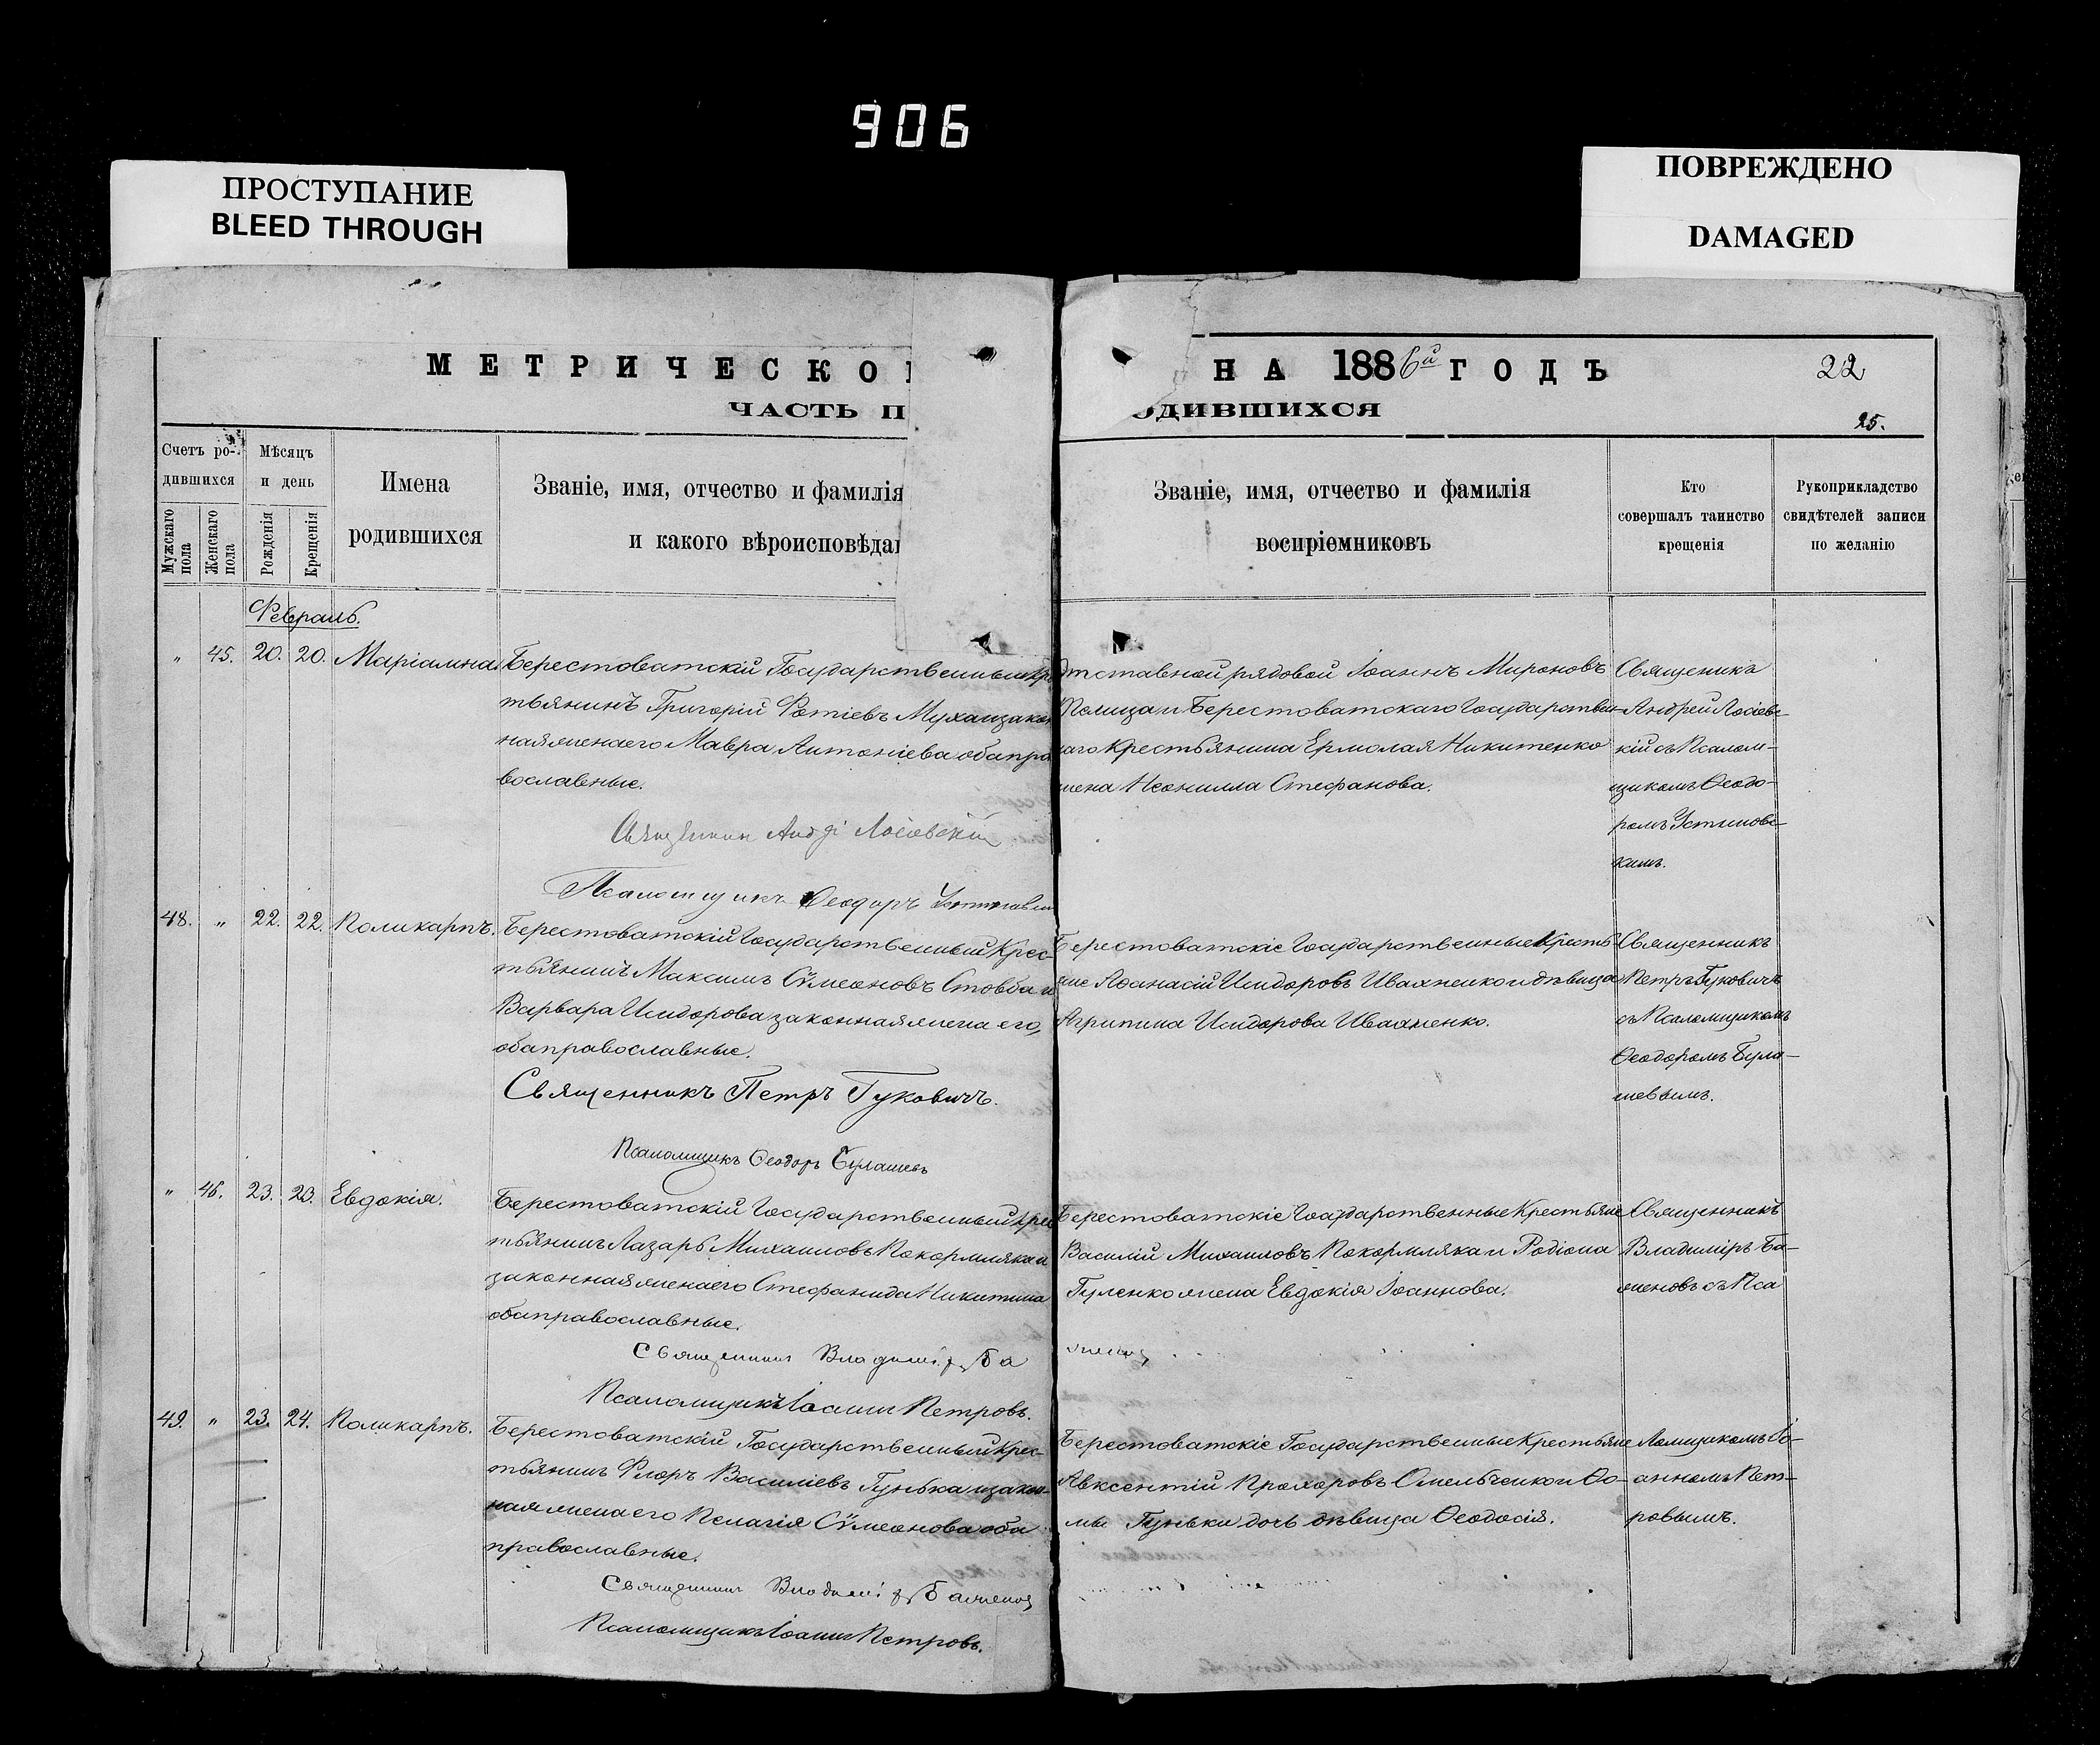 906
ПРОСТУПАНИЕ
BLEED THROUGH
ПОВРЕЖДЕНО
DAMAGED
МЕТРИЧЕСКО
НА 1886й ГОДЪ
22
ЧАСТЬ П
ОДИВШИХСЯ
25.
Счетъ ро-
дившихся
Мужскаго пола
Женскаго пола
Мѣсяцъ
и день
Рожденія
Крещенія
Имена
родившихся
Званіе, имя, отчество и фамилія
и какого вѣроисповѣда
Званіе, имя, отчество и фамилія
воспріемниковъ
Кто
совершалъ таинство
крещенія
Рукоприкладство
свидѣтелей записи
по желанію
Февраль.
„ 45. 20. 20. Маріамна.
Берестоватскій Государственный кре
тьянинъ Григорій Фотіевъ Муха и закон
ная жена его Мавра Антоніева оба пра
вославные.
Андрі Лосіевскій
Псаломщикъ Ѳеодоръ
Отставной рядовой Іоаннъ Мироновъ
Полица и Берестоватскаго Государствен-
наго крестьянина Ермолая Никитенко
жена Неонилла Стефанова.
Священикъ
Андрей Лосіевс-
кій съ Псалом-
щикомъ Ѳеодо-
ромъ Устиновс-
кимъ.
48. „ 22. 22. Поликарпъ.
Берестоватскій Государственный Крес-
тьянинъ Максимъ Сѵмеоновъ Стовба и
Варвара Исидорова законная жена его,
оба православные.
Священникъ Петръ Гуковичъ.
Псаломщикъ Ѳеодоръ Булашевъ
Берестоватскіе Государственные Кресть-
яне Аѳанасій Исидоровъ Ивахненко и дѣвица
Агрипина Исидорова Ивахненко.
Священникъ
Петръ Гуковичъ
съ Псаломщикомъ
Ѳеодоромъ Була-
шевымъ.
„ 46. 23. 23. Евдокія.
Берестоватскій Государственный крес
тьянинъ Лазарь Михаиловъ Покормляка и
законная жена его Стефанида Никитина
оба православные.
Священникъ Владимір Ба
женов
Псаломщикъ Іоаннъ Петровъ.
Берестоватскіе Государственные Крестьяне
Василій Михаиловъ Покормляка и Родіона
Гуленко жена Евдокія Іоаннова.
Священникъ
Владиміръ Ба-
женовъ съ Пса
49. „ 23. 24. Поликарпъ.
Берестоватскій Государственный крес-
тьянинъ Флоръ Василіевъ Гунька и закон-
ная жена его Пелагія Сѵмеонова оба
православные.
Священникъ Владимір Баженов
Псаломщикъ Іоаннъ Петровъ.
Берестоватскіе Государственные Крестьяне
Авксентій Прохоровъ Омельченко и Ѳо-
мы Гуньки дочь дѣвица Ѳеодосія.
ломщикомъ Іо-
анномъ Пет-
ровымъ.